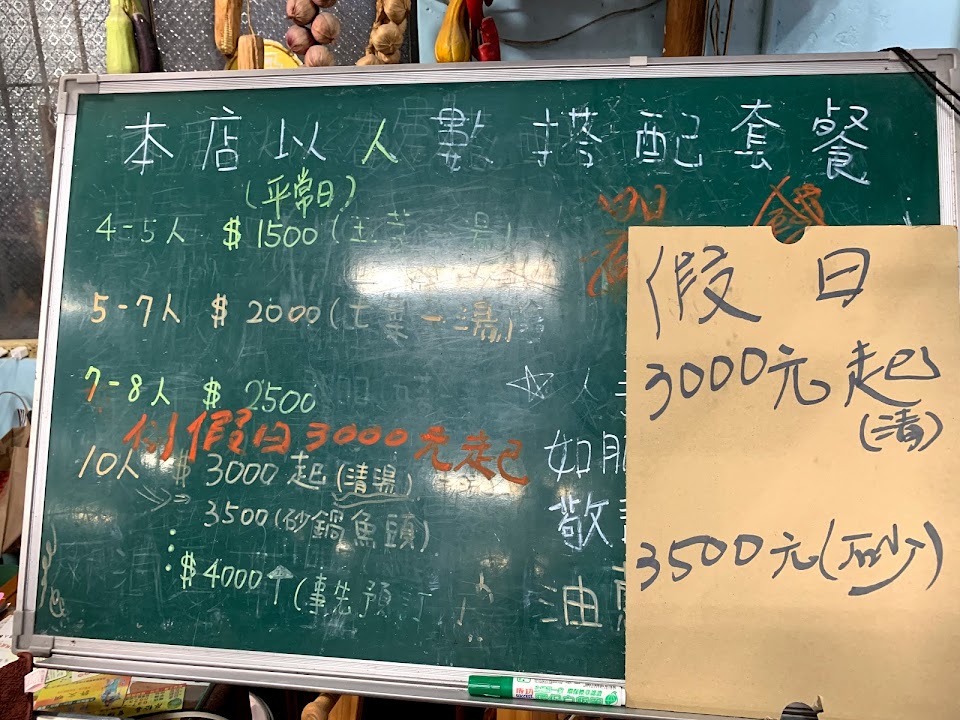 本店以人數搭配套餐
(平常日)
4-5人 $1500(五菜 湯)
5-7人 $2000(五菜一湯)
7-8人 $2500
例假日3000元起
10人 $3000起(清湯)
3500(砂鍋魚頭)
$4000↑(事先預訂
☆人
如
敬
油
假日
3000元起
(清)
3500元(砂)